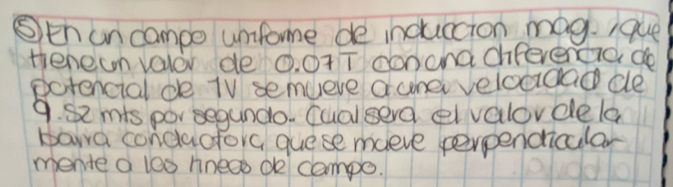 ⑤ En un campo uniforme de induccion mag. que
tiene un valor de 0.07 T con una diferencia de
potencial de 1V se mueve a una velocidad de
9.52 mts por segundo. Cual sera el valor de la
barra conductora que se mueve perpendicular
mente a las lineas de campo.